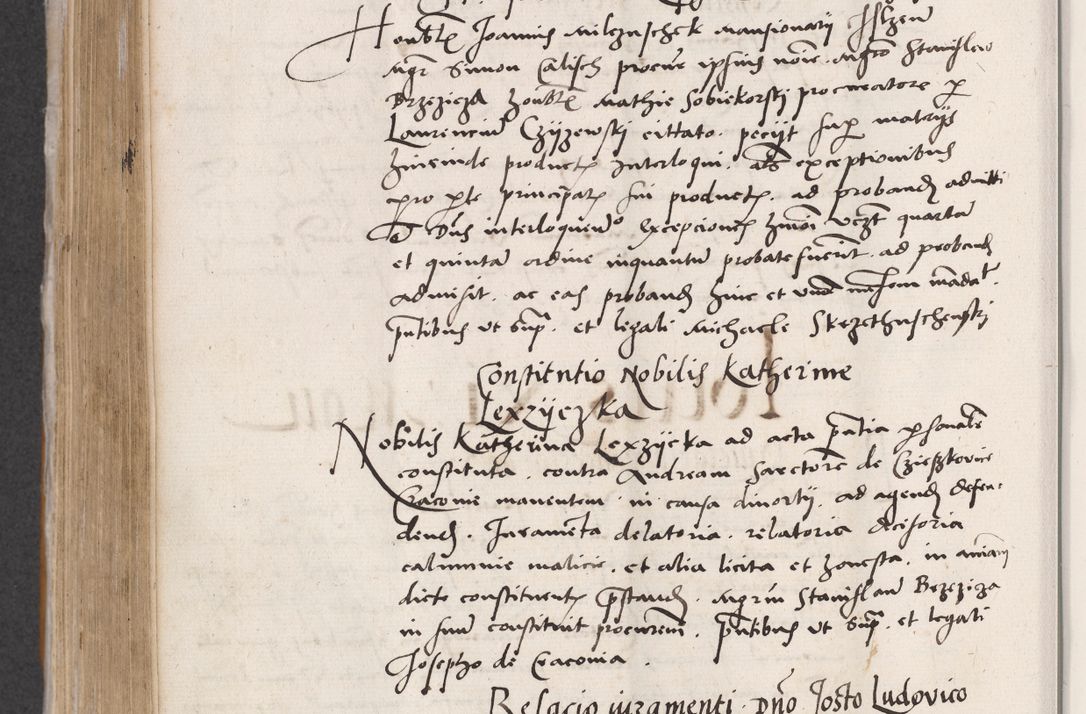 Honbl Joannis Milczuschek mansionarii Ilzen
Mgr Simon Calisch procur ipsius noie. Mgro Stanislao
Brzezicza honbl Mathie Sobiekorski procuratore per
Laurencium Czyzewski cittato. peciit sup materiis
hincinde product interloqui. als exceptionibus
pro pte principal sui product. ad proband admitti
Dns interloquendo exceptiones quarta
et quinta ordine inquantum probate fuerint. ad proband
admisit. ac eas proband hinc et
pntibus ut supra. et legali Michaele Skrzethuschewski
Constitutio Nobilis Katherine
Lexzyczka
Nobilis Katherina Lexzycka ad acta pntia psonalr
constituta. contra Andream Sarctore de Czieszkovice
Cracovie manentem in causa divortii. ad agend defen-
dend. Juramenta delatoria. relatoria decisoria
calumnie malicie. et alia licita et honesta. in animam
dicte constituent prestand. Mgrm Stanislaum Brzezicza
in suum constituit procurem. pntibus ut supra. et legali
Josepho de Cracovia.
Relacio juramenti. Dno Josto Ludovico